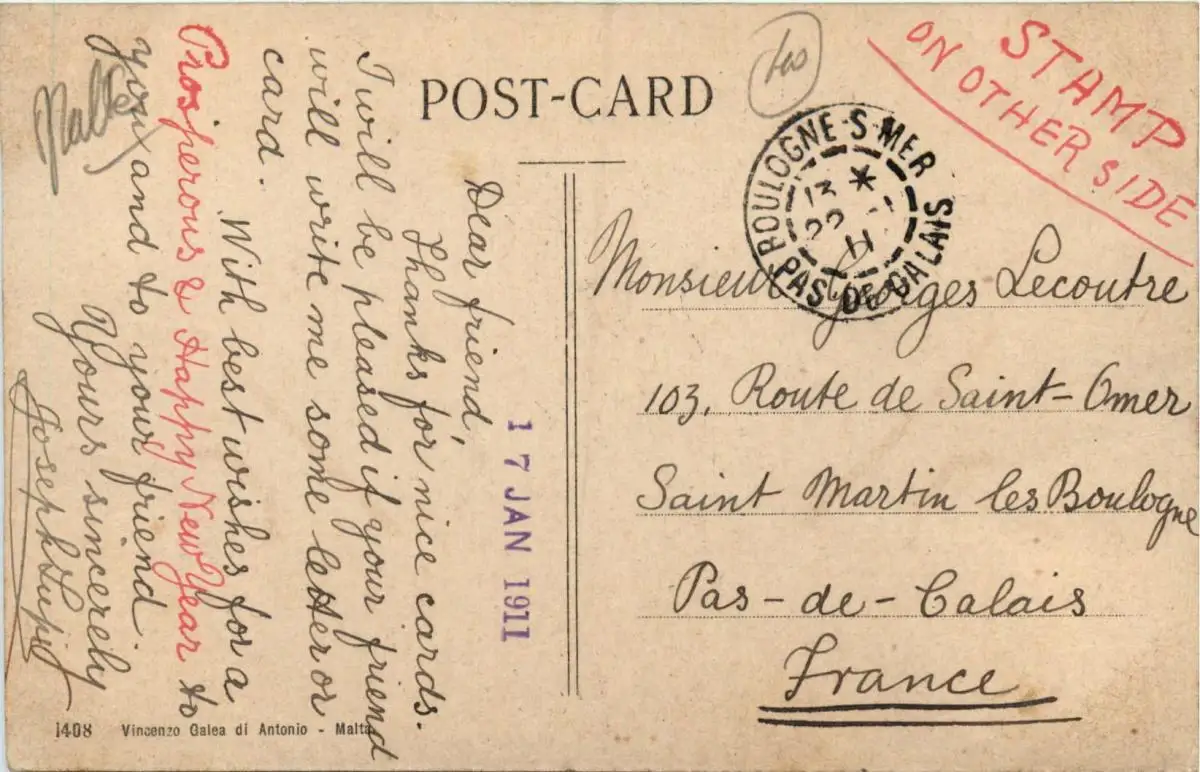 POST-CARD
STAMP
ON OTHER SIDE
BOULOGNE-S-MER
13 *
22 -1
11
PAS DE CALAIS
17 JAN 1911
Dear friend,
Thanks for nice cards.
I will be pleased if your friend
will write me some letter or
card.
With best wishes for a
Prosperous & Happy New Year to
you and to your friend
Yours sincerely
Joseph
Malta
Monsieur Georges Lecoutre
103, Route de Saint-Omer
Saint Martin les Boulogne
Pas-de-Calais
France
1408 Vincenzo Galea di Antonio - Malta